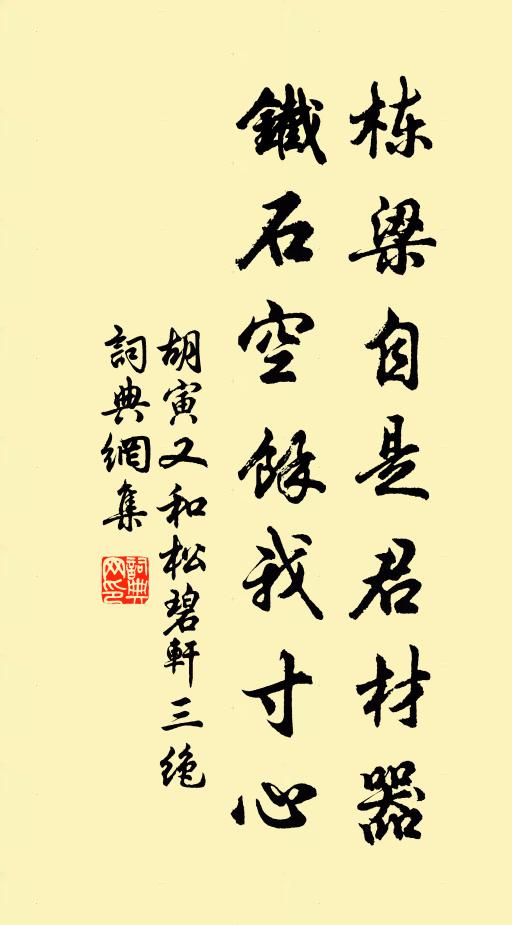 栋梁自是君材器
鐵石空餘我寸心
胡寅又和松碧軒三绝
詞典網集
詞典网印